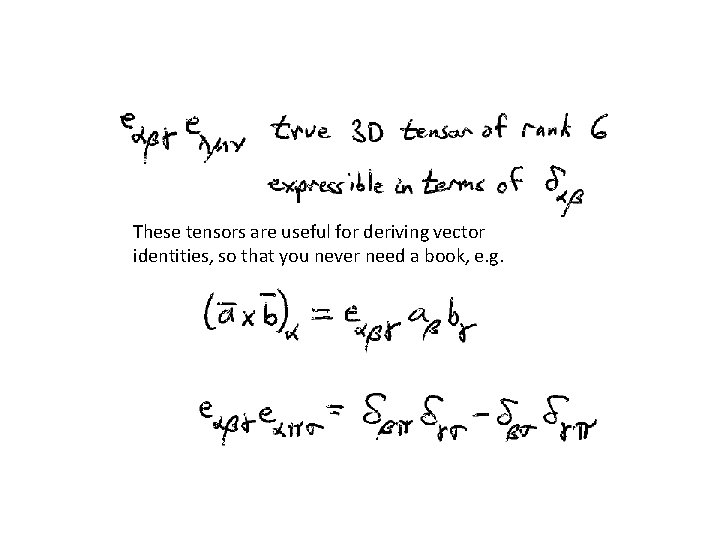 e_{αβγ} e_{λμν} true 3D tensor of rank 6
expressible in terms of δ_{αβ}
These tensors are useful for deriving vector
identities, so that you never need a book, e.g.
(a̅ x b̅)_α = e_{αβγ} a_β b_γ
e_{αβγ} e_{απσ} = δ_{βπ} δ_{γσ} - δ_{βσ} δ_{γπ}